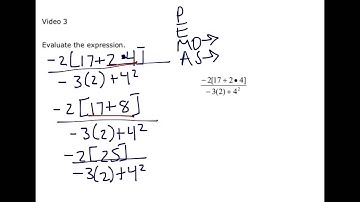 Video 3
P
E
MD→
AS→
Evaluate the expression.
-2[17+2·4]
-3(2)+4²
-2[17+2•4]
-3(2)+4²
-2[17+8]
-3(2)+4²
-2[25]
-3(2)+4²